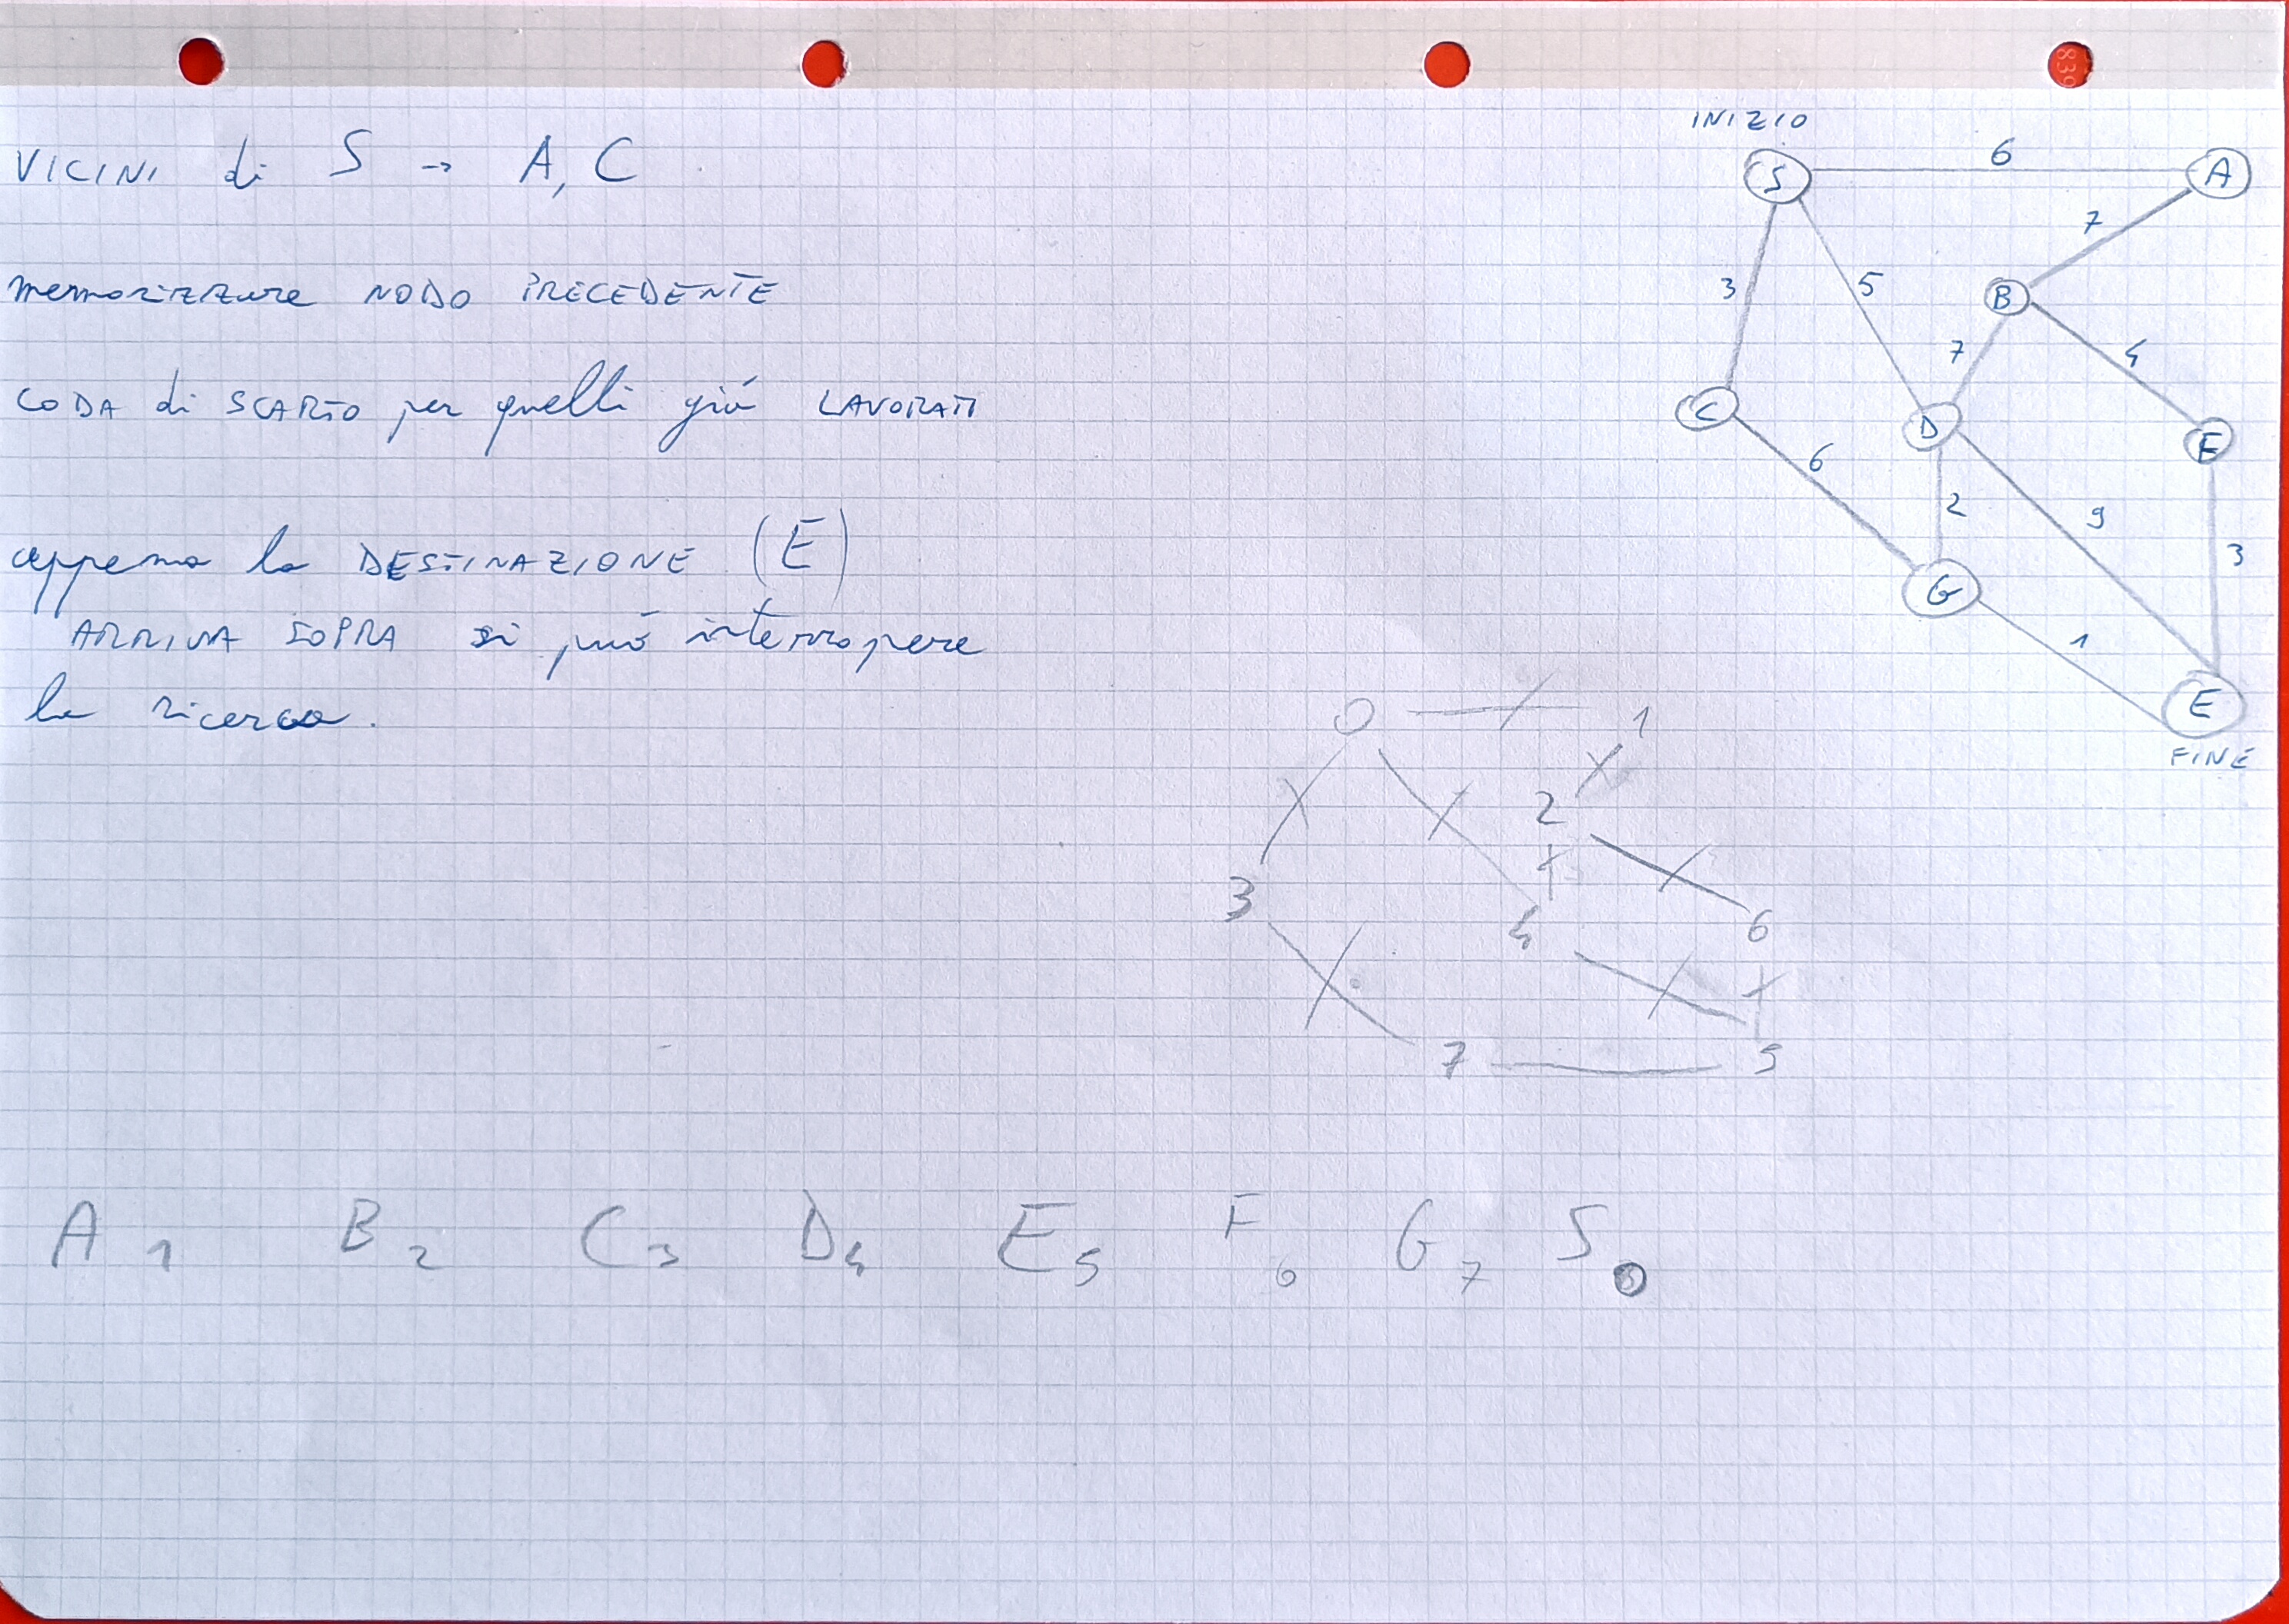 VICINI di S → A, C
memorizzare NODO PRECEDENTE
CODA di SCARTO per quelli giá LAVORATI
appena la DESTINAZIONE (E)
ARRIVA SOPRA si puó interropere
la ricerca.
INIZIO
S 6 A
7
3 5 B
7 4
C D F
6 2 9
3
G 1
E
FINE
0 1
2
3 4 6
7 5
A 1 B 2 C 3 D 4 E 5 F 6 G 7 S 0